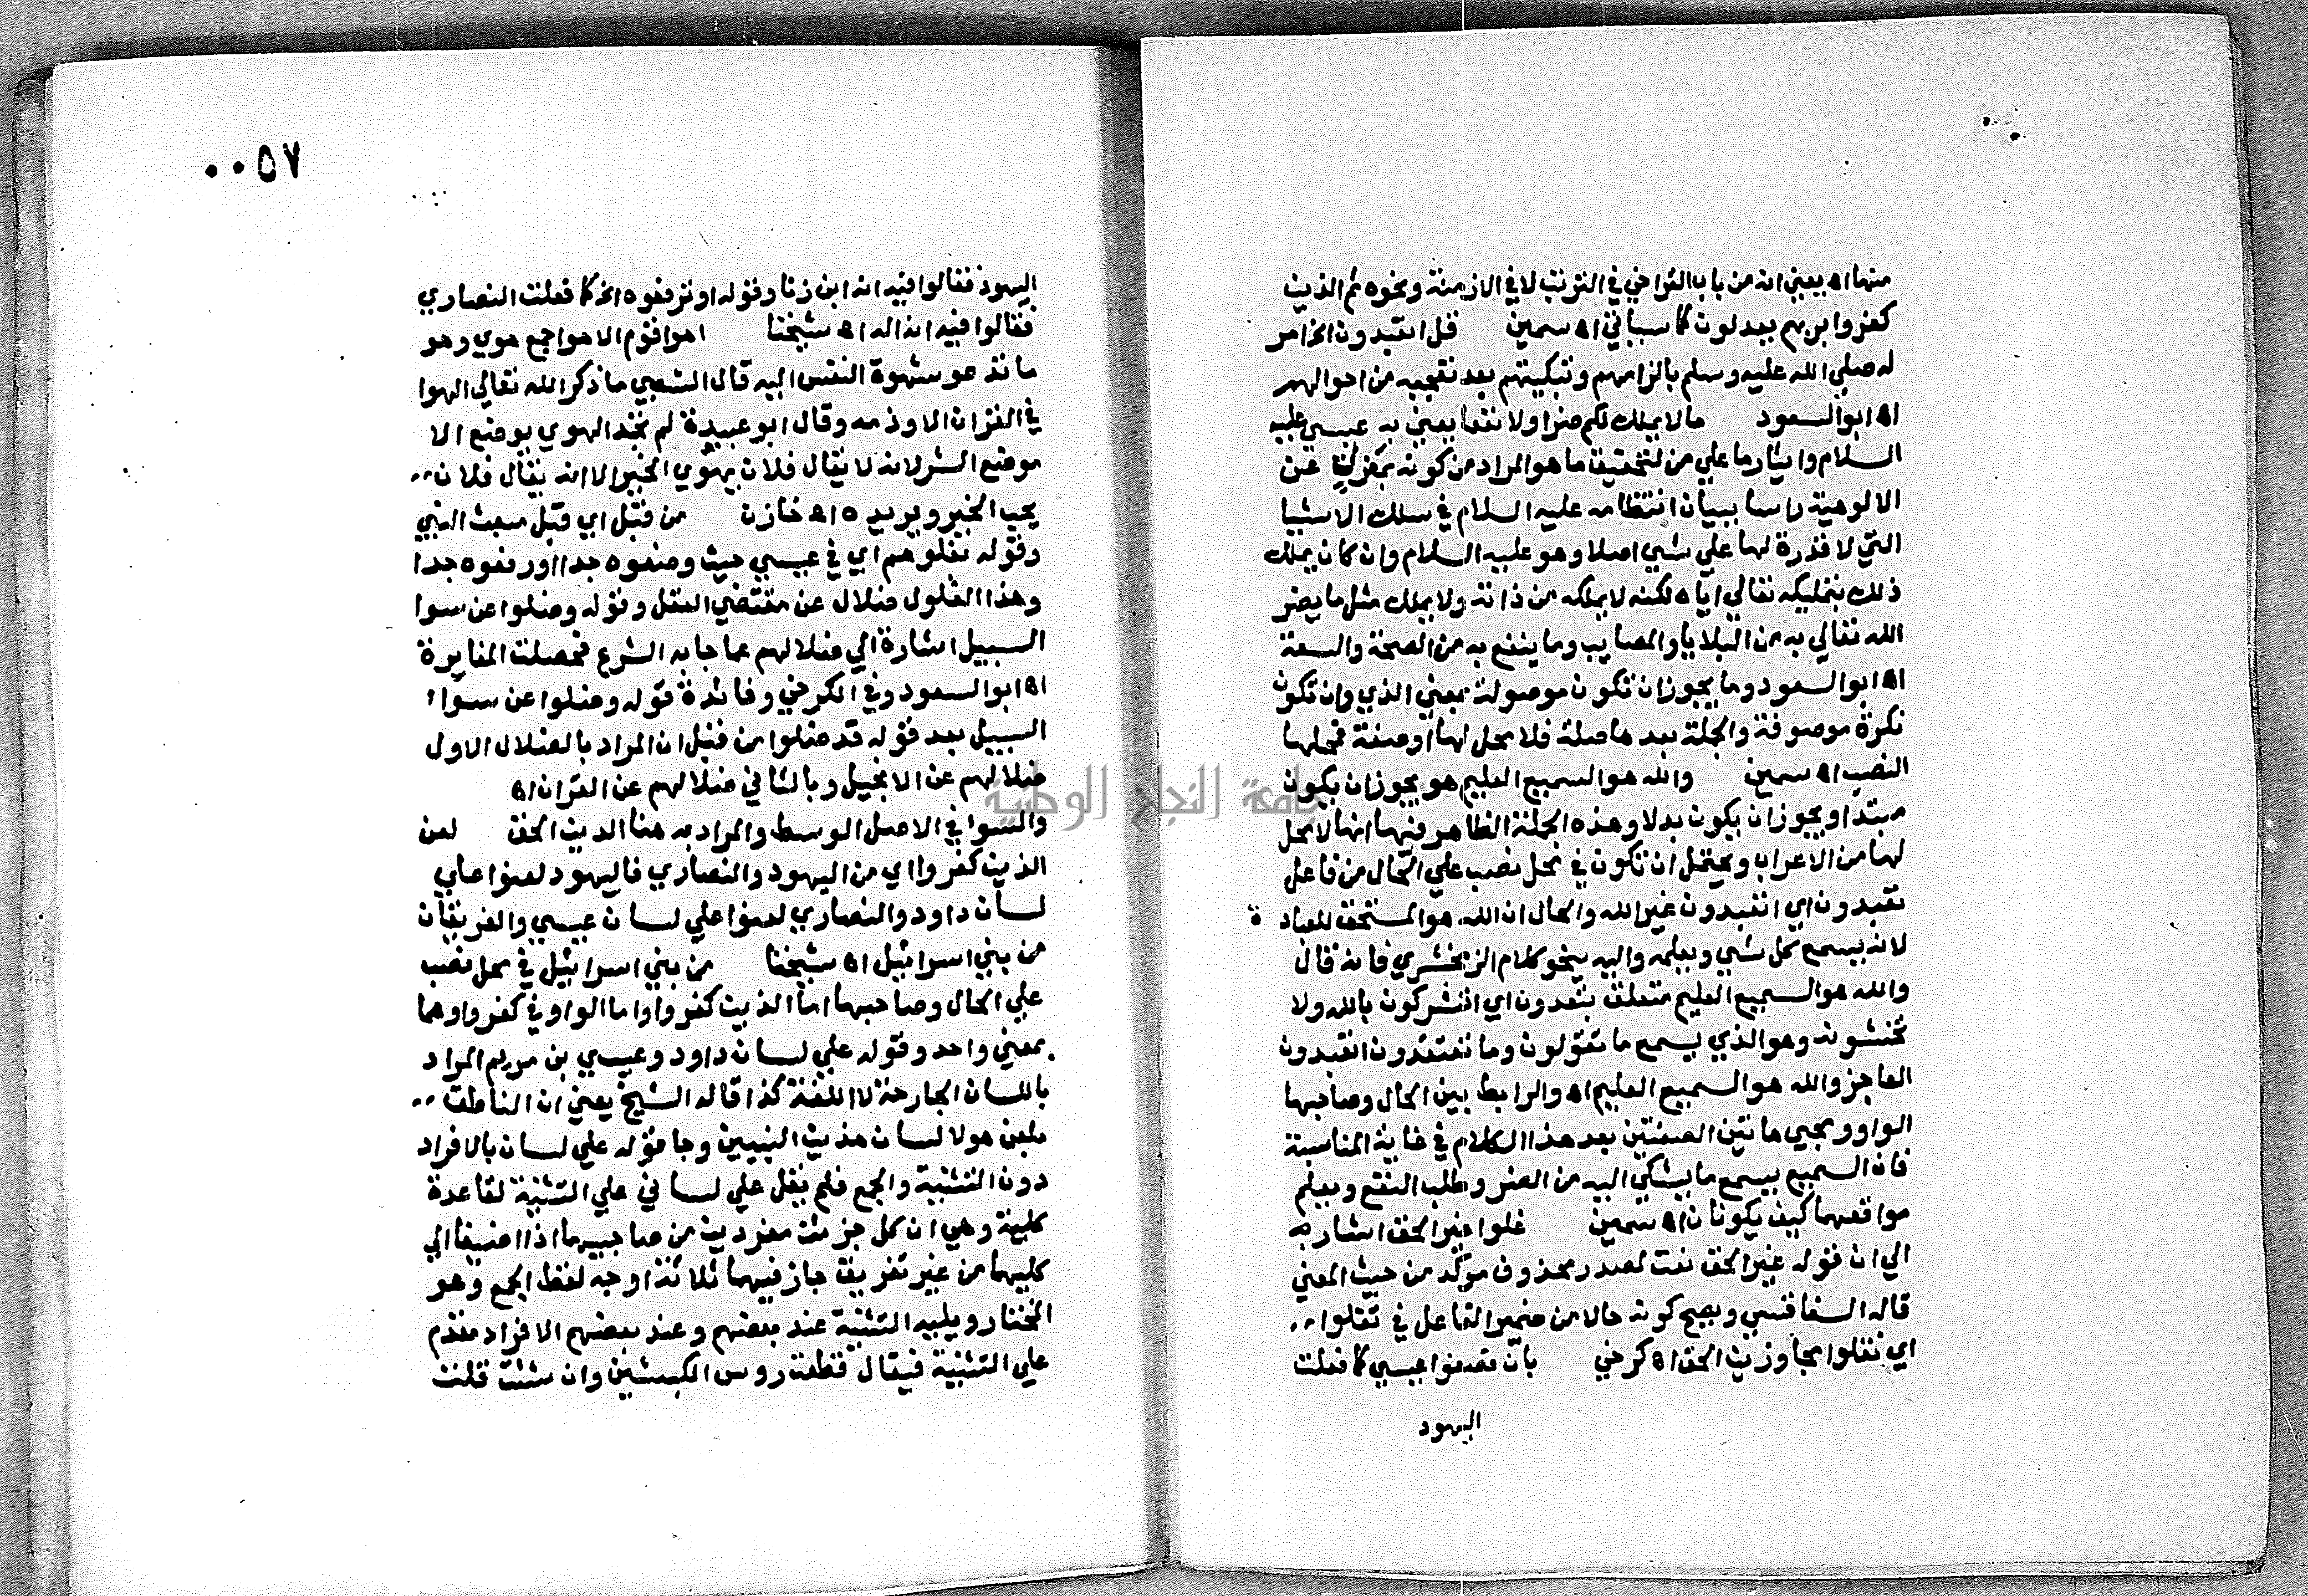 منها اه يعني انه من باب التراخي في الترتب لا في الازمنة ونحوه ثم الذين
كفروا بربهم يعدلون كما سيأتي اه سمين قل اتعبدون الخ امر
له صلي الله عليه وسلم بالزامهم وتبكيتهم بعد تعجيبه من احوالهم
اه ابو السعود ما لا يملك لكم ضرا ولا نفعا يعني به عيسي عليه
السلام وايثار ما علي من لتحقيق ما هو المراد من كونه بمعزل عن
الالوهية راسا ببيان انتظامه عليه السلام في سلك الاشيا
التي لا قدرة لها علي شي اصلا وهو عليه السلام وان كان يملك
ذلك بتمليكه تعالي اياه لكنه لا يملكه من ذاته ولا يملك مثل ما يضر
الله تعالي به من البلايا والمصايب وما ينفع به من الصحة والسعة
اه ابو السعود وما يجوز ان تكون موصولة بمعني الذي وان تكون
نكرة موصوفة والجملة بعدها صلة فلا محل لها او صفة فمحلها
النصب اه سمين والله هو السميع العليم هو يجوز ان يكون
مبتدا ويجوز ان يكون بدلا وهذه الجملة الظاهر فيها انها لا محل
لها من الاعراب ويحتمل ان تكون في محل نصب علي الحال من فاعل
تعبدون اي اتعبدون غير الله والحال ان الله هو المستحق للعبادة
لانه يسمع كل شي ويعلمه واليه ينحو كلام الزمخشري فانه قال
والله هو السميع العليم متعلق بتعبدون اي اتشركون بالله ولا
تخشونه وهو الذي يسمع ما تقولون وما تعتقدون اتعبدون
العاجز والله هو السميع العليم اه والرابط بين الحال وصاحبها
الواو ومجي هاتين الصفتين بعد هذا الكلام في غاية المناسبة
فان السميع يسمع ما يشتكي اليه من الضر وطلب النفع ويعلم
مواقعهما كيف يكونان اه سمين غلوا غير الحق اشار به
الي ان قوله غير الحق نعت لمصدر محذوف مؤكد من حيث المعني
قاله السفاقسي ويصح كونه حالا من ضمير الفاعل في تغلوا
اي تغلوا مجاوزين الحق اه كرخي بان تضعوا عيسي كما فعلت
اليهود
٠٠٥٧
اليهود فقالوا فيه انه ابن زنا وقوله او ترفعوه الخ كما فعلت النصاري
فقالوا فيه انه اله اه شيخنا اهوا قوم الاهوا جمع هوي وهو
ما تدعو شهوة النفس اليه قال الشعبي ما ذكر الله تعالي الهوا
في القران الا وذمه وقال ابو عبيدة لم نجد الهوي يوضع الا
موضع الشر لانه لا يقال فلان يهوي الخير الا انه يقال فلان
يحب الخير ويريده اه خازن من قبل اي قبل مبعث النبي
وقوله بغلوهم اي في عيسي حيث وضعوه جدا او رفعوه جدا
وهذا الغلول ضلال عن مقتضي العقل وقوله وضلوا عن سوا
السبيل اشارة الي ضلالهم عما جا به الشرع فحصلت المغايرة
اه ابو السعود وفي الكرخي وفائدة قوله وضلوا عن سوا
السبيل بعد قوله قد ضلوا من قبل ان المراد بالضلال الاول
ضلالهم عن الانجيل وبالثاني ضلالهم عن القران اه
والسوا في الاصل الوسط والمراد به هنا الدين الحق لعن
الذين كفروا اي من اليهود والنصاري فاليهود لعنوا علي
لسان داود والنصاري لعنوا علي لسان عيسي والفريقان
من بني اسرائيل اه شيخنا من بني اسرائيل في محل نصب
علي الحال وصاحبها اما الذين كفروا واما الواو في كفروا وهما
بمعني واحد وقوله علي لسان داود وعيسي بن مريم المراد
باللسان الجارحة لا اللغة كذا قاله الشيخ يعني ان الناطق
بلعن هولا لسان هذين النبيين وجا قوله علي لسان بالافراد
دون التثنية والجمع فلم يقل علي لساني علي التثنية لقاعدة
كلية وهي ان كل جزئين مفردين من صاحبيهما اذا اضيفا الي
كليهما من غير تفريق جاز فيهما ثلاثة اوجه لفظ الجمع وهو
المختار ويليه التثنية عند بعضهم وعند بعضهم الافراد مقدم
علي التثنية فيقال قطعت روس الكبشين وان شئت قلت
جامعة النجاح الوطنية